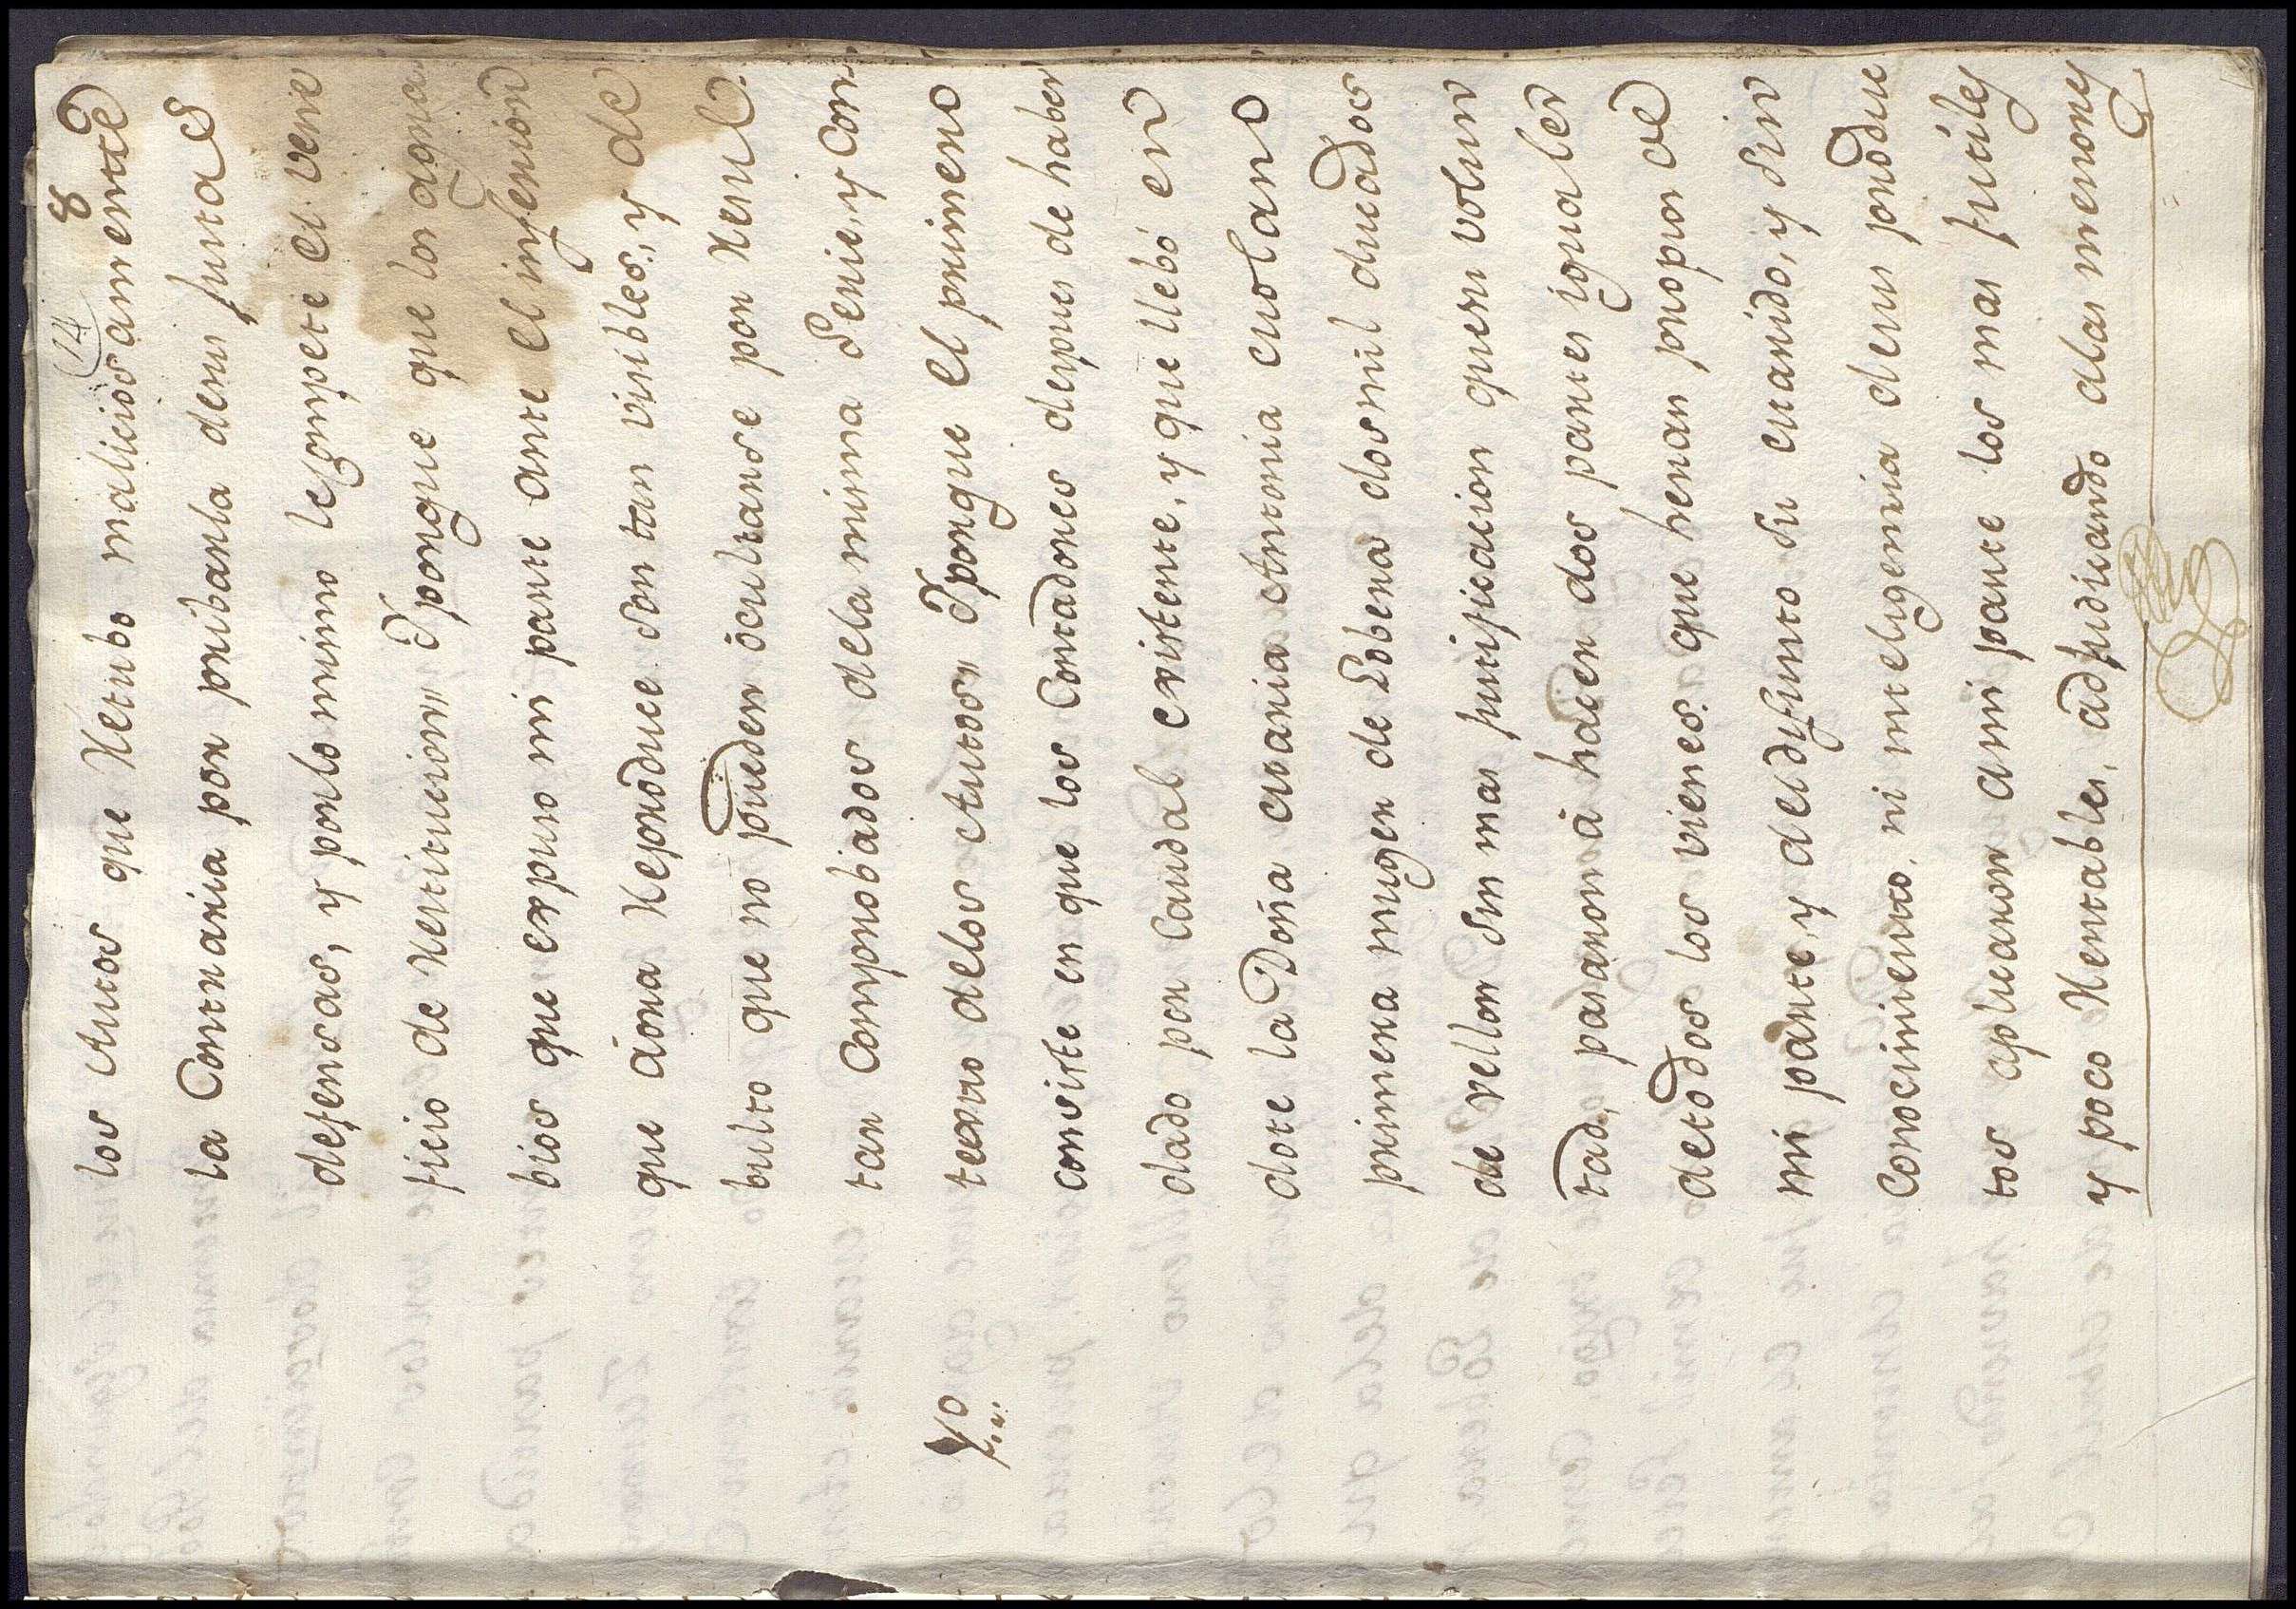 (14) 8
los Autos que Retubo maliciosamente
la Contraria por pribarla desus Justas
defensas, y porlo mismo lecompete el vene
ficio de Restitucion,, Yporque que los agra
bios que expuso mi parte ante el inferior
que áora Reproduce son tan visibles, y de
bulto que no pueden ócultarse por Resul
tar Comprobados dela misma Serie, y Con
texto delos Autos,, Yporque el primero
consiste en que los Contadores despues de haber
dado por Caudal existente, y que llebó en
dote la Doña Maria Antonia Molano
primera muger de Lobera dos mil ducados
de vellon sin mas justificacion quesu volun
tad, pasaron á hacer dos partes iguales
detodos los vienes que heran propios de
mi parte, y deldifunto su marido, y sin
Conocimiento, ni inteligencia desus produc
tos aplicaron ami parte los mas futiles
y poco Rentables, adjudicando alas menores
1º